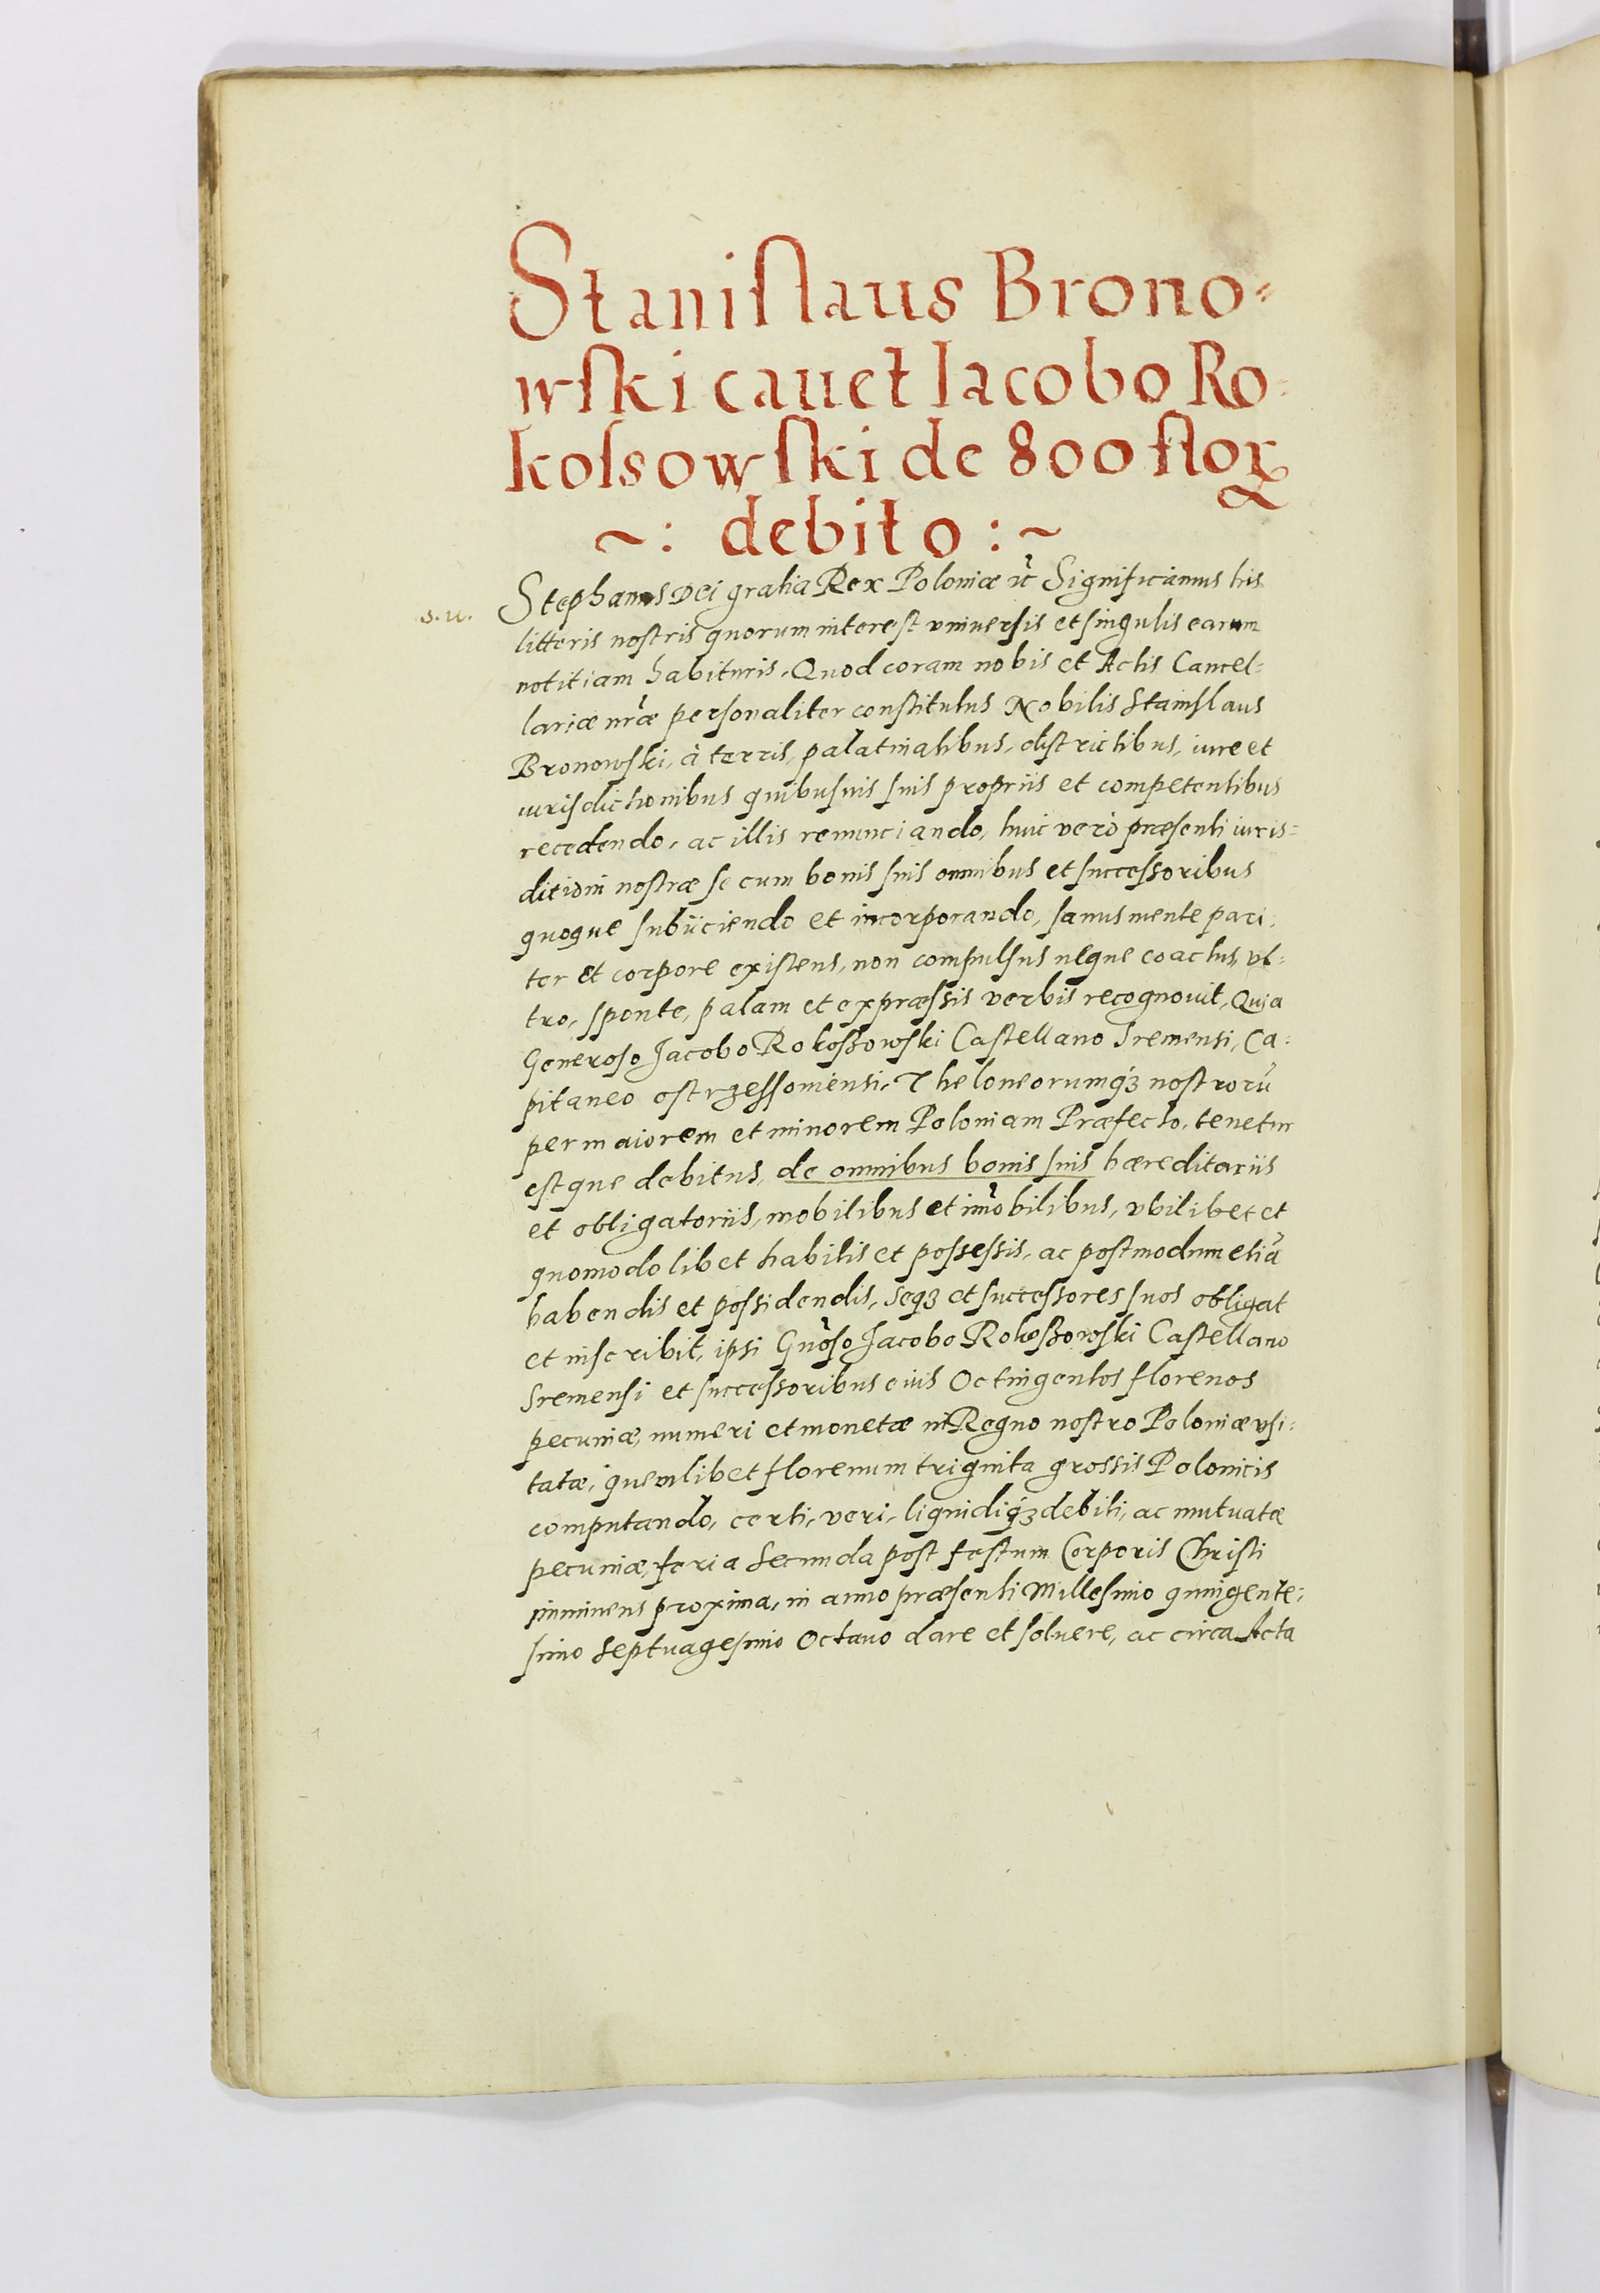 Staniſlaus Brono=
wſki cauet Iacobo Ro-
koſsowſki de 800 floꝝ
~: debito :~
s. u.
Stephanus Dei gratia Rex Poloniæ ꝛc̃ Significamus his
litteris nostris quorum interest vniuersis et singulis earum
notitiam habituris, Quod coram nobis et Actis Cancel=
lariæ nr̃æ personaliter constitutus Nobilis Stanislaus
Bronowski, à terris, palatinatibus, districtibus, iure et
iurisdictionibus quibusuis suis propriis et competentibus
recedendo, ac illis renunciando, huic verò præsenti iuris=
ditioni nostræ se cum bonis suis omnibus et successoribus
quoque subijciendo et incorporando, sanus mente pari-
ter et corpore existens, non compulsus neque coactus, vl-
tro, sponte, palam et expræssis verbis recognouit, Quia
Generoso Jacobo Rokoſsowski Castellano Sremensi, Ca=
pitaneo ostrzessoviensi, Theloneorumq́ꝫ nostrorũ
per maiorem et minorem Poloniam Præfecto, tenetur
estque debitus, de omnibus bonis suis hæreditariis
et obligatoriis, mobilibus et im̃obilibus, vbilibet et
quomodolibet habitis et possessis, ac postmodum etiã
habendis et possidendis, Seqꝫ et successores suos obligat
et inscribit, ipsi Gnõso Jacobo Rokoſsowski Castellano
Sremensi et successoribus eius Octingentos florenos
pecuniæ, numeri et monetæ in Regno nostro Poloniæ vsi=
tatæ, quemlibet florenum triginta grossis Polonicis
computando, certi, veri, liquidiq́ꝫ debiti, ac mutuatæ
pecuniæ, feria Secunda post festum Corporis Christi
imminens proxima, in anno præsenti Millesimo quingente=
simo Septuagesimo Octauo dare et soluere, ac circa Acta